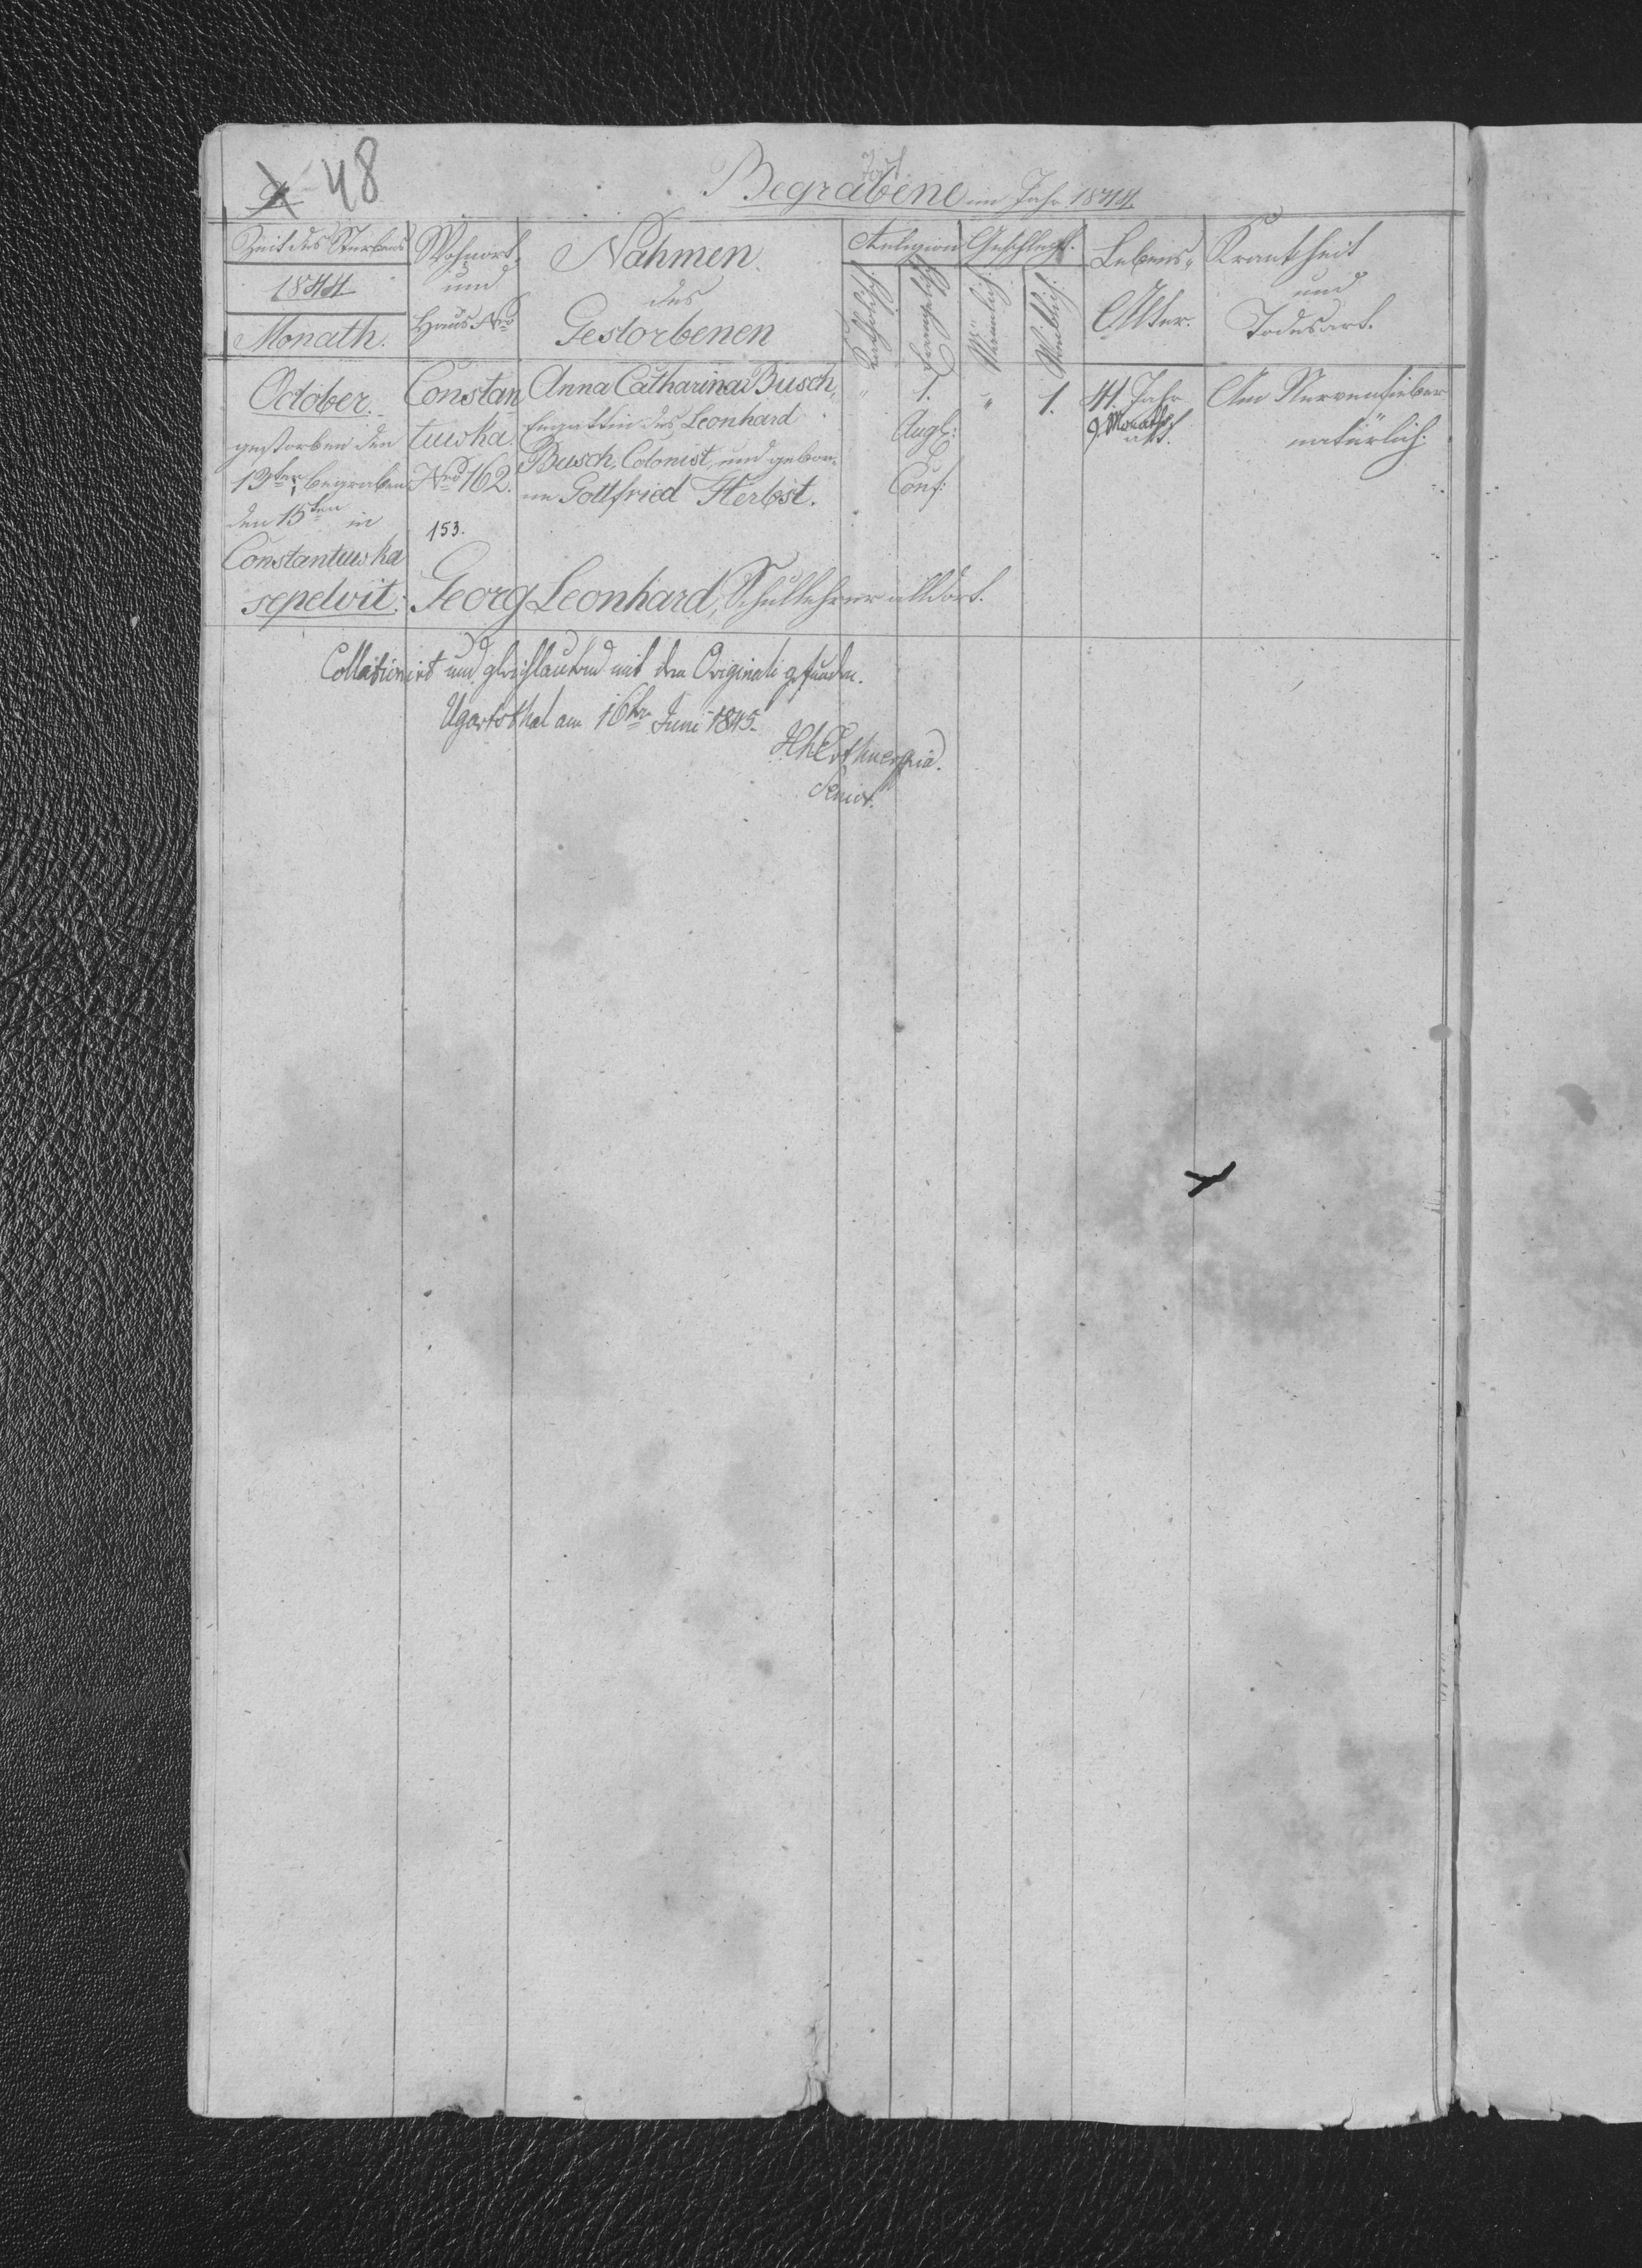 48
Begrabene im Jahr 1844.
Zeit des Sterbens
1844
Monath.
Wohnort,
und
Haus Nro
Nahmen.
des
Gestorbenen
Religion
Katholisch.
Evangelisch
Geschlecht.
Männlich.
Weiblich.
Lebens-
Alter.
Krankheit
und
Todesart.
October.
gestorben den
13ten, begraben
den 15ten in
Constantuwka
sepelvit:
Constan
tuwka.
Nro 162.
153.
Anna Catharina Busch,
Ehgattin des Leonhard
Busch, Colonist, und gebor-
ne Gottfried Herbst.
" 1. " 1.
Augb:
Conf:
41. Jahr
9 Monath
alt.
Am Nervenfieber
natürlich.
Georg Leonhard, Schullehrer alldort.
Collationirt und gleichlautend mit dem Originali gefunden.
Ugartsthal am 16ten Juni 1845.
Senior.